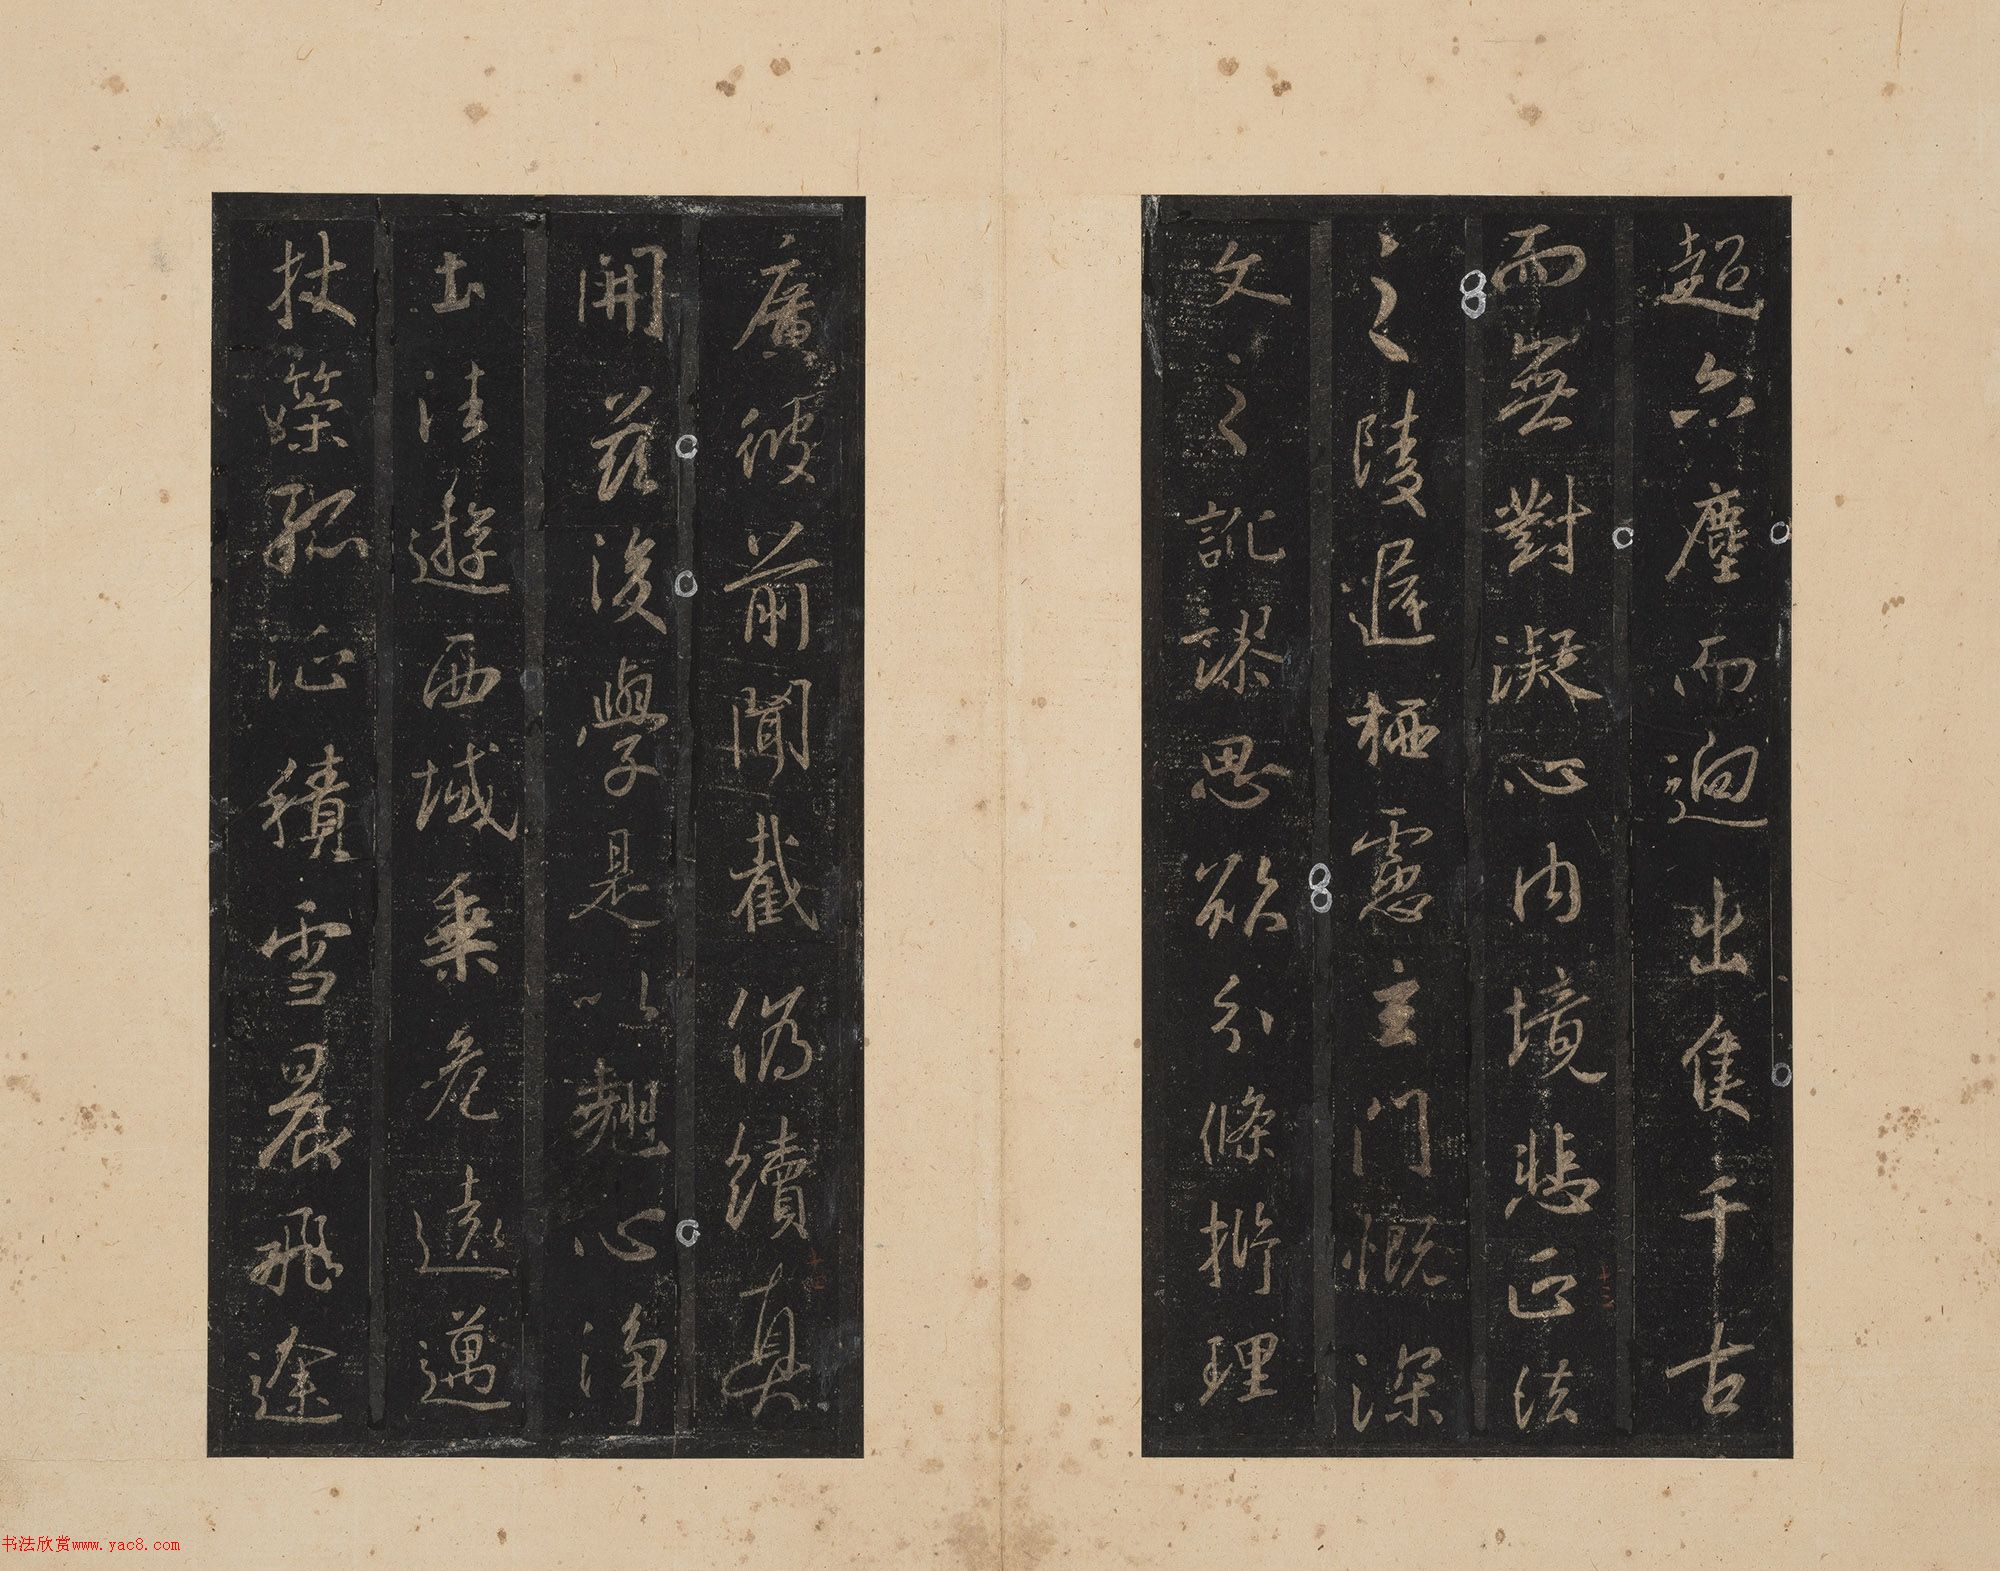 超六塵而迥出隻千古
而無對凝心內境悲正法
之陵遲栖慮玄門慨深
文之訛謬思欲分條析理
十三
廣彼前聞截偽續真
開茲後學是以翹心淨
土往遊西域乘危遠邁
杖策孤征積雪晨飛途
十四
书法欣赏www.yac8.com